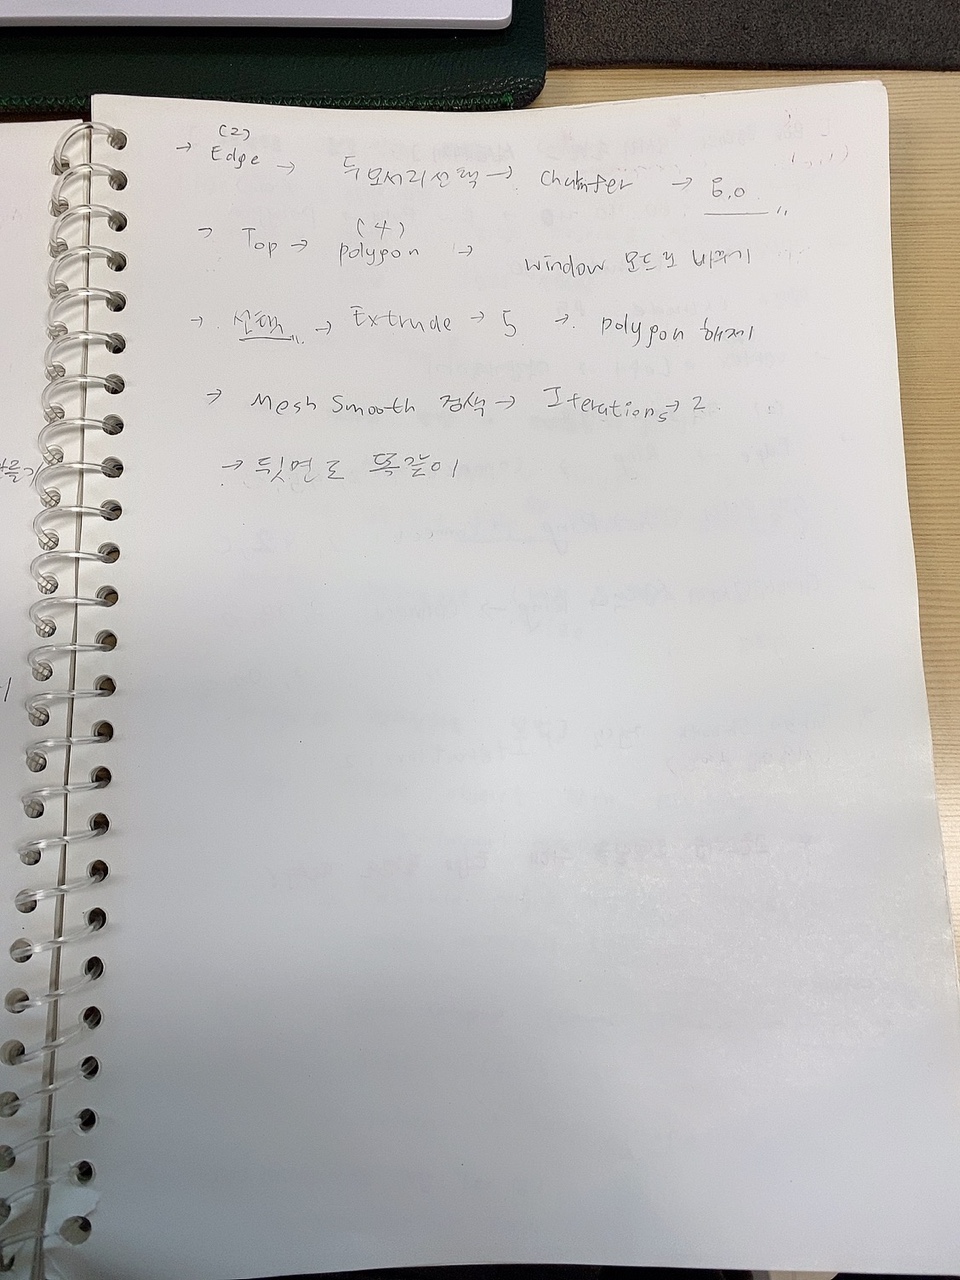 (2)
→ Edge → 두 모서리 선택 → Chamfer → 6.0
(4)
→ Top → polygon → window 모드로 바꾸기
→ 선택 → Extrude → 5 → polygon 해제
→ Mesh Smooth 검색 → Iterations → 2
→ 뒷면도 똑같이